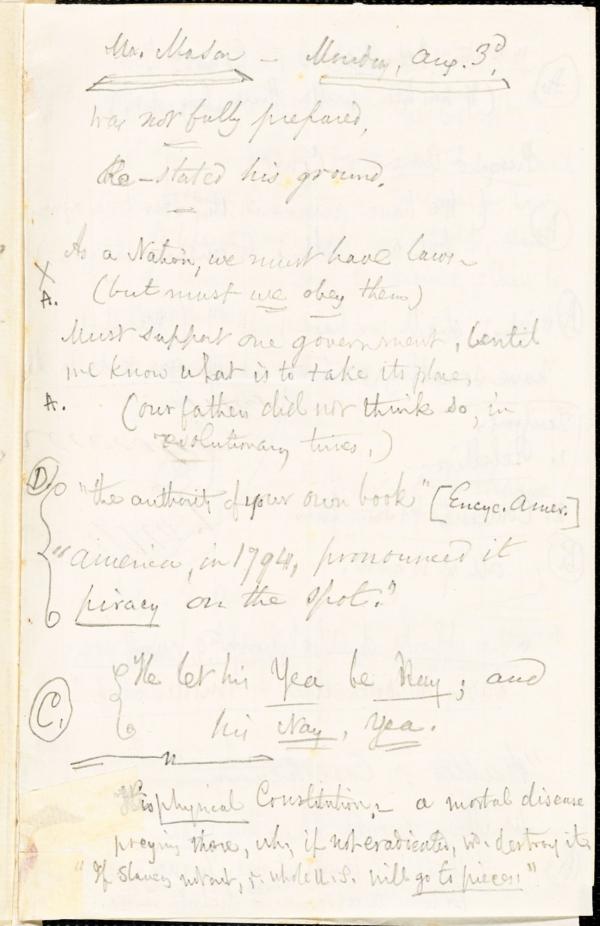 Mr. Mason – Monday, Aug. 3d.
was not fully prepared,
Re-stated his ground.
As a Nation, we must have laws –
X
A. (but must we obey them)
Must support one government, until
we know what is to take its place,
A. (our fathers did not think so, in
revolutionary times.)
D. "the authority of your own book" [Encyc. Amer.]
"America, in 1794, pronounced it
piracy on the spot."
C. "He let his Yea be Nay; and
his Nay, Yea.
His physical Constitution, – a mortal disease
preying there, wh, if not eradicated, wd. destroy it,
"If Slavery not out, ye. whole U.S. will go to pieces!"